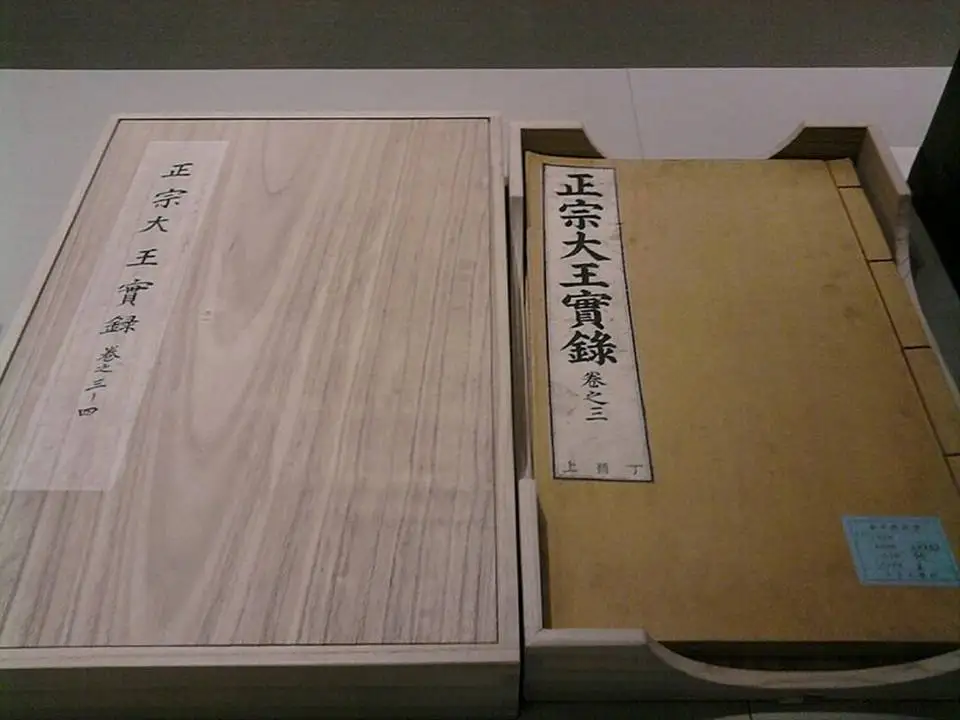 正宗大王實録
卷之三~四
正宗大王實錄
卷之三
丁酉上